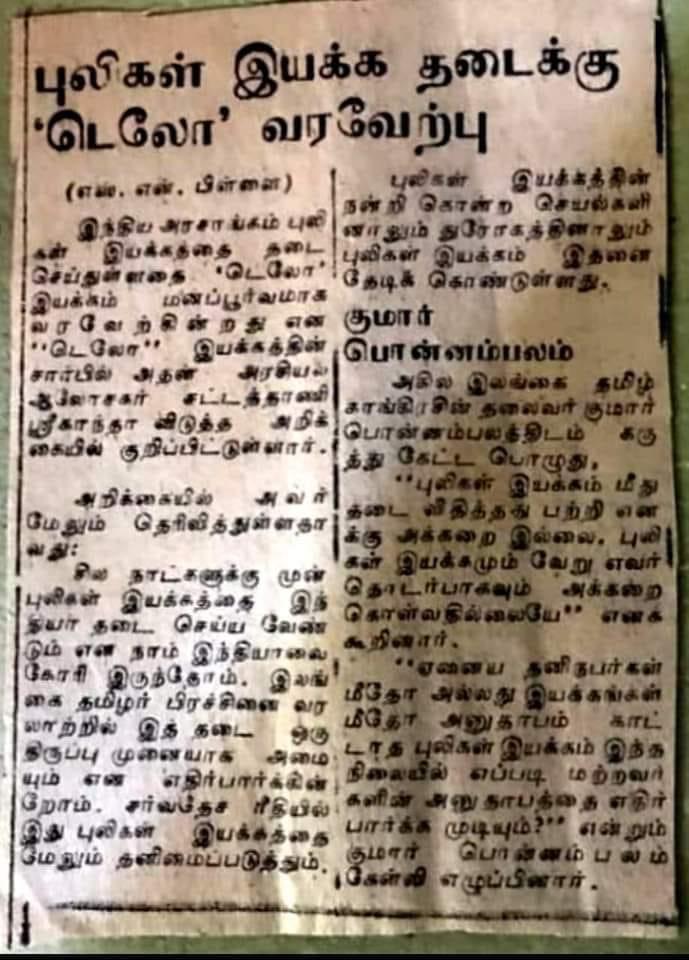 புலிகள் இயக்க தடைக்கு
'டெலோ' வரவேற்பு
(எஸ். என். பிள்ளை)
இந்திய அரசாங்கம் புலி
கள் இயக்கத்தை தடை
செய்துள்ளதை 'டெலோ'
இயக்கம் மனப்பூர்வமாக
வரவேற்கின்றது என
"டெலோ" இயக்கத்தின்
சார்பில் அதன் அரசியல்
ஆலோசகர் சட்டத்தரணி
ஸ்ரீகாந்தா விடுத்த அறிக்
கையில் குறிப்பிட்டுள்ளார்.
அறிக்கையில் அவர்
மேலும் தெரிவித்துள்ளதா
வது:
சில நாட்களுக்கு முன்
புலிகள் இயக்கத்தை இந்
தியா தடை செய்ய வேண்
டும் என நாம் இந்தியாவை
கோரி இருந்தோம். இலங்
கை தமிழர் பிரச்சினை வர
லாற்றில் இத் தடை ஒரு
திருப்பு முனையாக அமை
யும் என எதிர்பார்க்கின்
றோம். சர்வதேச ரீதியில்
இது புலிகள் இயக்கத்தை
மேலும் தனிமைப்படுத்தும்.
புலிகள் இயக்கத்தின்
நன்றி கொன்ற செயல்களி
னாலும் துரோகத்தினாலும்
புலிகள் இயக்கம் இதனை
தேடிக் கொண்டுள்ளது.
குமார்
பொன்னம்பலம்
அகில இலங்கை தமிழ்
காங்கிரசின் தலைவர் குமார்
பொன்னம்பலத்திடம் கரு
த்து கேட்ட பொழுது,
"புலிகள் இயக்கம் மீது
தடை விதித்தது பற்றி என
க்கு அக்கறை இல்லை. புலி
கள் இயக்கமும் வேறு எவர்
தொடர்பாகவும் அக்கறை
கொள்வதில்லையே" எனக்
கூறினார்.
"ஏனைய தனிநபர்கள்
மீதோ அல்லது இயக்கங்கள்
மீதோ அனுதாபம் காட்
டாத புலிகள் இயக்கம் இந்த
நிலையில் எப்படி மற்றவர்
களின் அனுதாபத்தை எதிர்
பார்க்க முடியும்?" என்றும்
குமார் பொன்னம்பலம்
கேள்வி எழுப்பினார்.